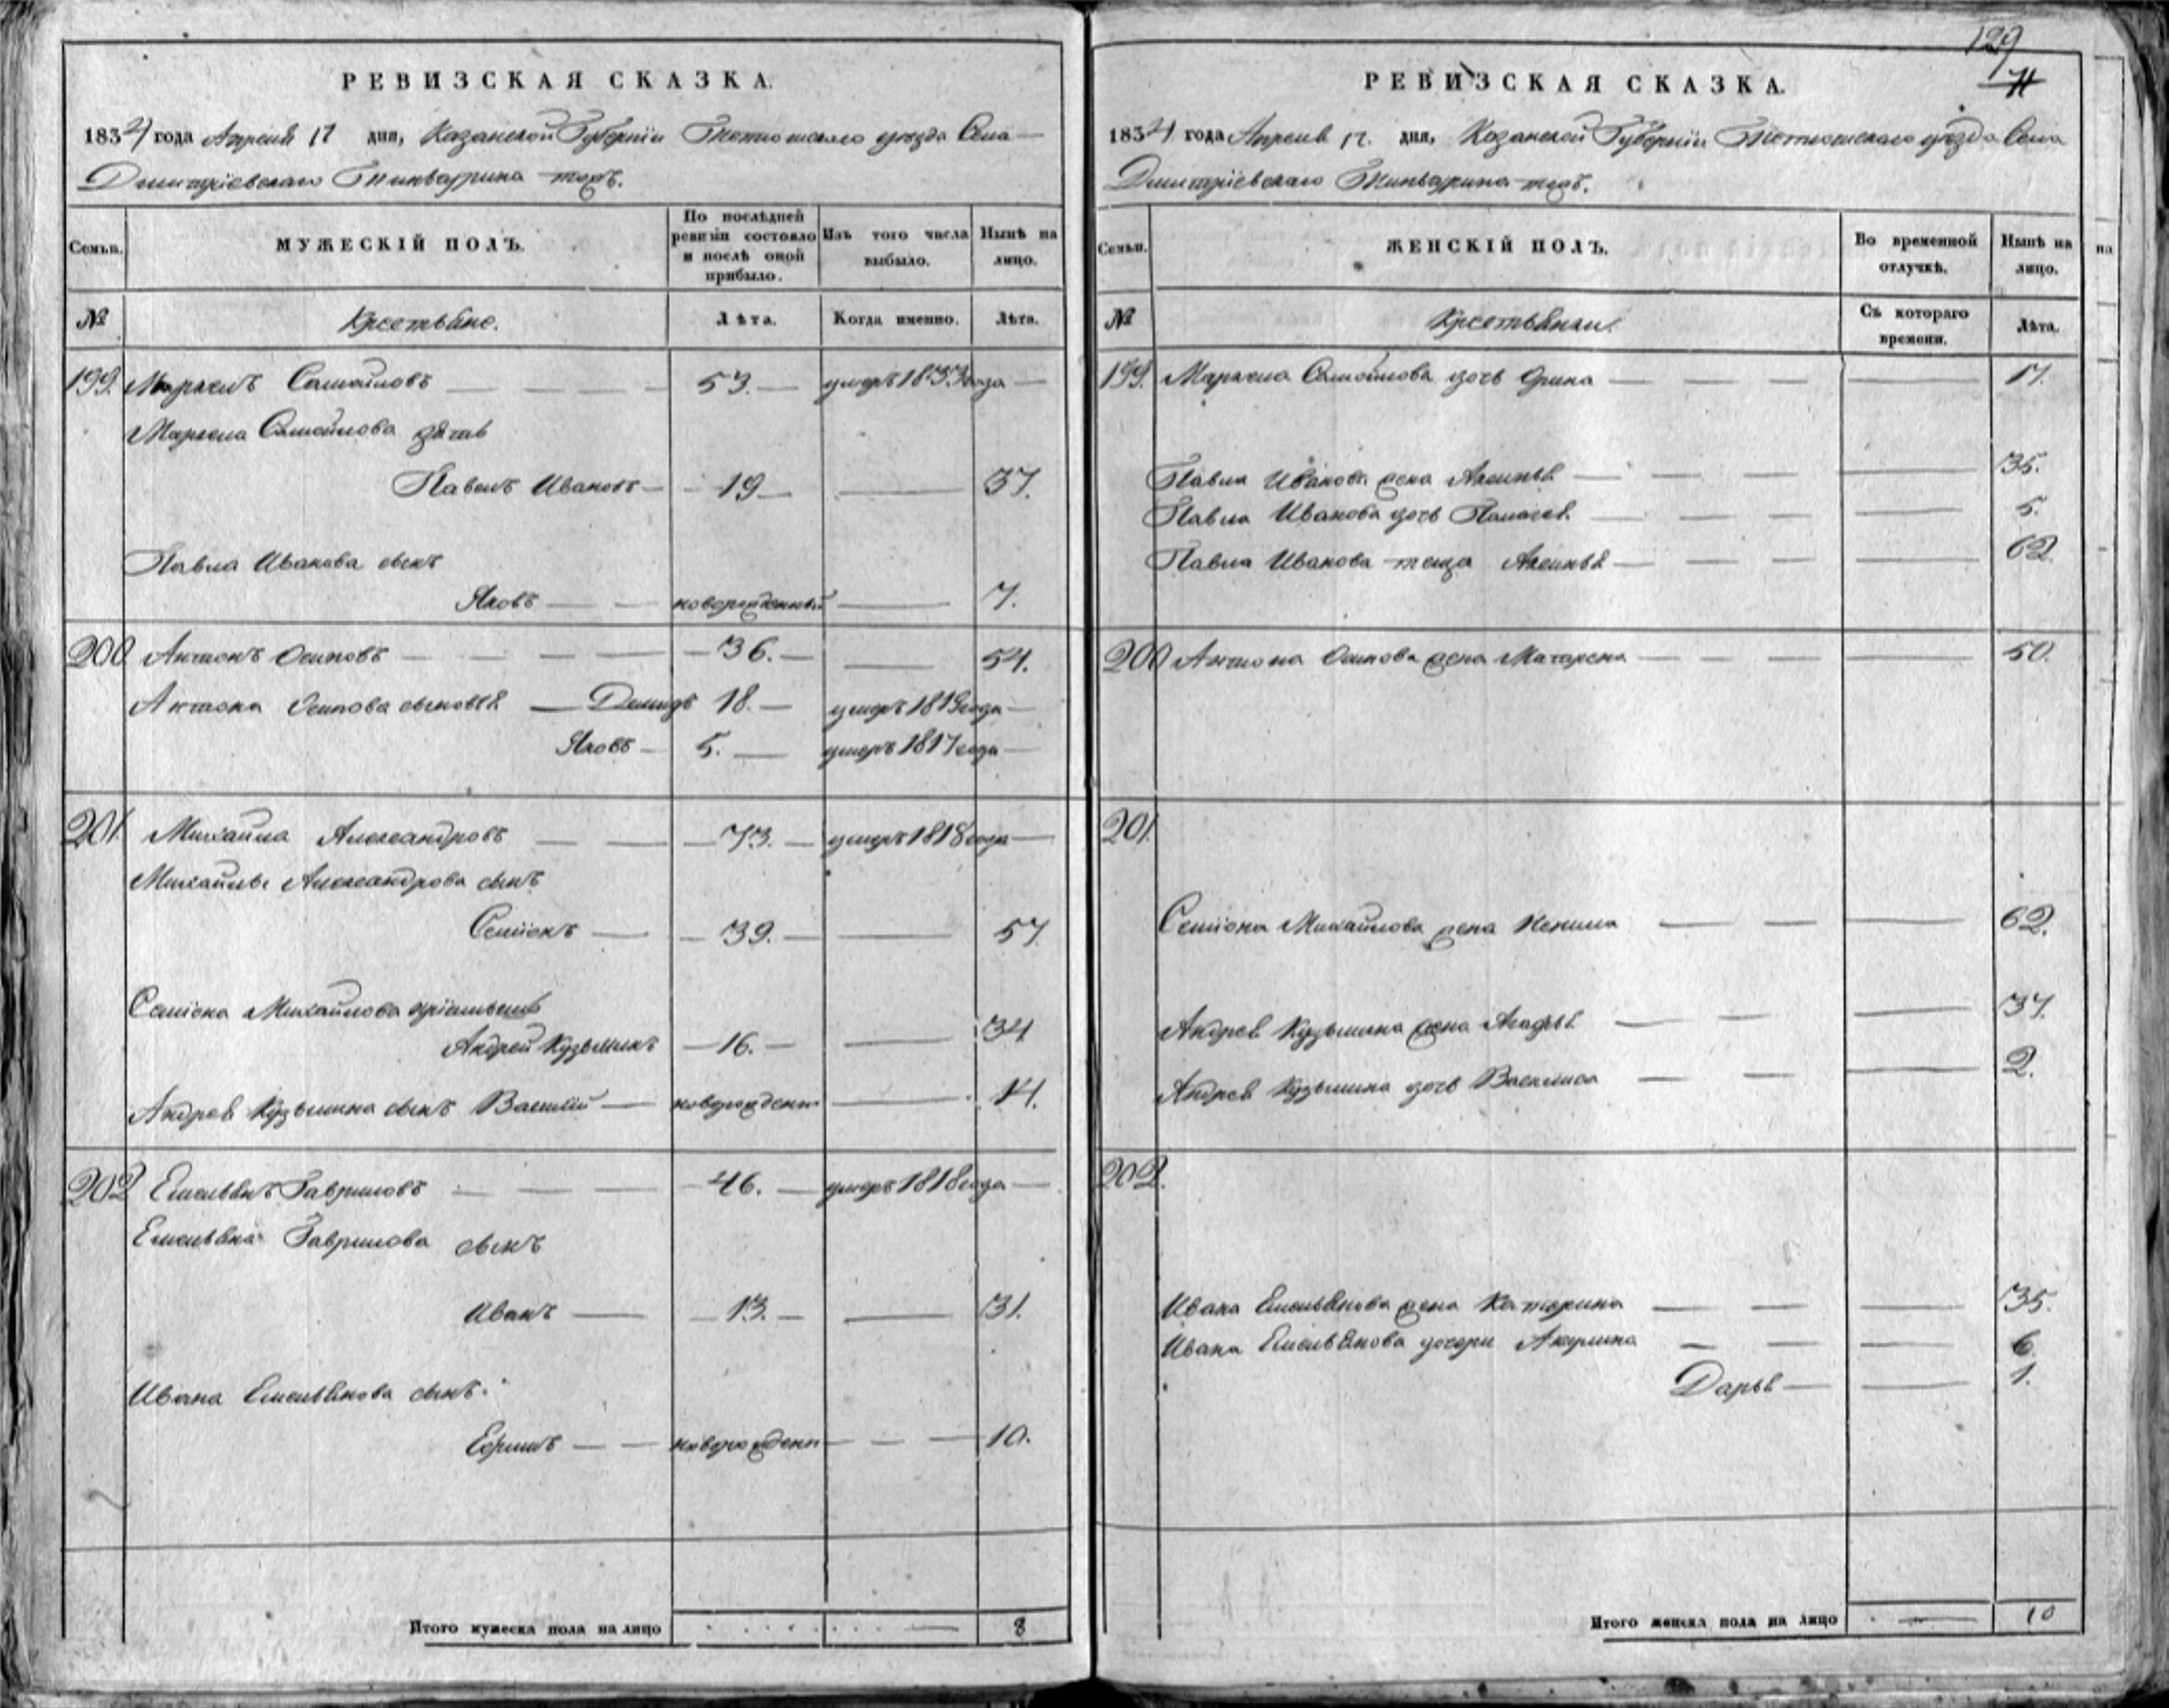 129
11
РЕВИЗСКАЯ СКАЗКА.
1834 года Апреля 17 дня, Казанской Губернiи Тетюшскаго уѣзда Села
Дмитрiевскаго тожъ.
Семьи.
МУЖЕСКIЙ ПОЛЪ.
По послѣдней ревизiи состояло и послѣ оной прибыло.
Изъ того числа выбыло.
Нынѣ на лицо.
№
Крестьяне.
Лѣта.
Когда именно.
Лѣта.
199. Маркелъ Самойловъ 53. умеръ 1833 года
Маркела Самойлова дѣти
Павелъ Ивановъ 19 37.
Павла Иванова сынъ
Яковъ новорожденный 7.
200 Антонъ Осиповъ 36. 54.
Антона Осипова сыновья Демидъ 18. умеръ 1819 года
Яковъ 5. умеръ 1817 года
201. Михайла Александровъ 73. умеръ 1818 года
Михайлы Александрова сынъ
Семiонъ 39. 57.
Семiона Михайлова прiимышъ
Андрей Кузьминъ 16. 34
Андрея Кузьмина сынъ Василiй новорожден 14.
202 Емельянъ Гавриловъ 46. умеръ 1818 года
Емельяна Гаврилова сынъ
Иванъ 13. 31.
Ивана Емельянова сынъ
Ефимъ новорожден 10.
Итого мужеска пола на лицо 8
РЕВИЗСКАЯ СКАЗКА.
1834 года Апреля 17. дня, Казанской Губернiи Тетюшскаго уѣзда Села
Дмитрiевскаго тожъ.
Семьи.
ЖЕНСКIЙ ПОЛЪ.
Во временной отлучкѣ.
Нынѣ на лицо.
№
Крестьянки.
Съ котораго времени.
Лѣта.
199. Маркела Самойлова дочь Орина 17.
Павла Иванова жена Аксинья 35.
Павла Иванова дочь Палагея 5.
Павла Иванова теща Аксинья 62.
200 Антона Осипова жена Матарена 50.
201.
Семiона Михайлова жена Ненила 62.
Андрея Кузьмина жена Агафья 37.
Андрея Кузьмина дочь Василиса 2.
202.
Ивана Емельянова жена Катерина 35.
Ивана Емельянова дочери Акулина 6.
Дарья 1.
Итого женска пола на лицо 10